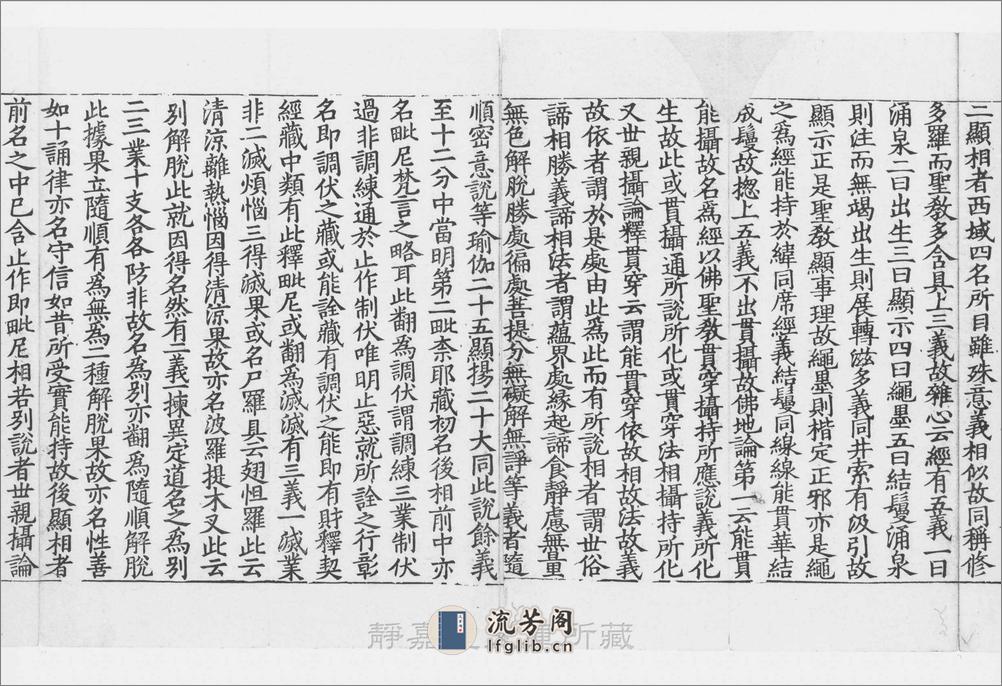 二顯相者西域四名所目雖殊意義相似故同稱修
多羅而聖教多含具上三義故雜心云經有五義一曰
涌泉二曰出生三曰顯示四曰繩墨五曰結鬘涌泉
則注而無竭出生則展轉滋多義同井索有汲引故
顯示正是聖教顯事理故繩墨則楷定正邪亦是繩
之為經能持於緯同席經義結鬘同線線能貫華結
成鬘故揔上五義不出貫攝故佛地論第一云能貫
能攝故名爲經以佛聖教貫穿攝持所應說義所化
生故此或貫攝通所說所化或貫穿法相攝持所化
又世親攝論釋貫穿云謂能貫穿依故相故法故義
故依者謂於是處由此為此而有所說相者謂世俗
諦相勝義諦相法者謂蘊界處緣起諦食靜慮無量
無色解脫勝處徧處菩提分無礙解無諍等義者隨
順密意說等瑜伽二十五顯揚二十大同此說餘義
至十二分中當明第二毗柰耶藏初名後相前中亦
名毗尼梵言之略耳此翻為調伏謂調練三業制伏
過非調練通於止作制伏唯明止惡就所詮之行彰
名即調伏之藏或能詮藏有調伏之能即有財釋契
經藏中類有此釋毗尼或翻爲滅滅有三義一滅業
非二滅煩惱三得滅果或名尸羅具云翅怛羅此云
清涼離熱惱因得清涼果故亦名波羅提木叉此云
別解脫此就因得名然有二義一揀異定道名之為別
二三業十支各各防非故名為別亦翻爲隨順解脫
此據果立隨順有為無為二種解脫果故亦名性善
如十誦律亦名守信如昔所受實能持故後顯相者
前名之中已含止作即毗尼相若別說者世親攝論
流芳阁
lfglib.cn
靜嘉 所藏